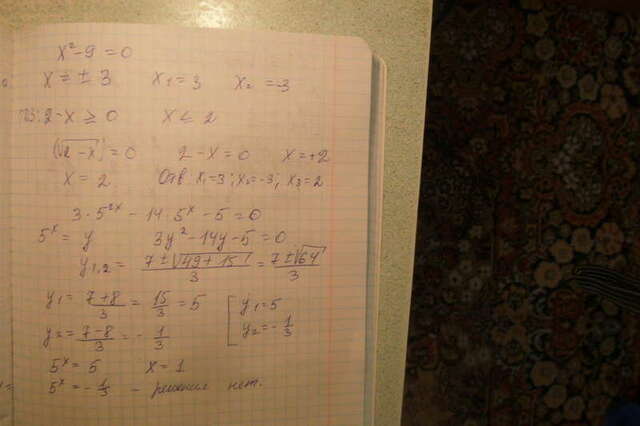 x² - 9 = 0
x = ± 3 x₁ = 3 x₂ = -3
ОДЗ: 2 - x ≥ 0 x ≤ 2
(√2 - x) = 0 2 - x = 0 x = +2
x = 2 Отв. x₁ = 3; x₂ = -3; x₃ = 2
3 · 5²ˣ - 14 · 5ˣ - 5 = 0
5ˣ = y 3y² - 14y - 5 = 0
y₁,₂ = (7 ± √49 + 15)/3 = (7 ± √64)/3
y₁ = (7 + 8)/3 = 15/3 = 5 [ y₁ = 5
y₂ = (7 - 8)/3 = - 1/3 y₂ = - 1/3
5ˣ = 5 x = 1
5ˣ = - 1/3 - решения нет.